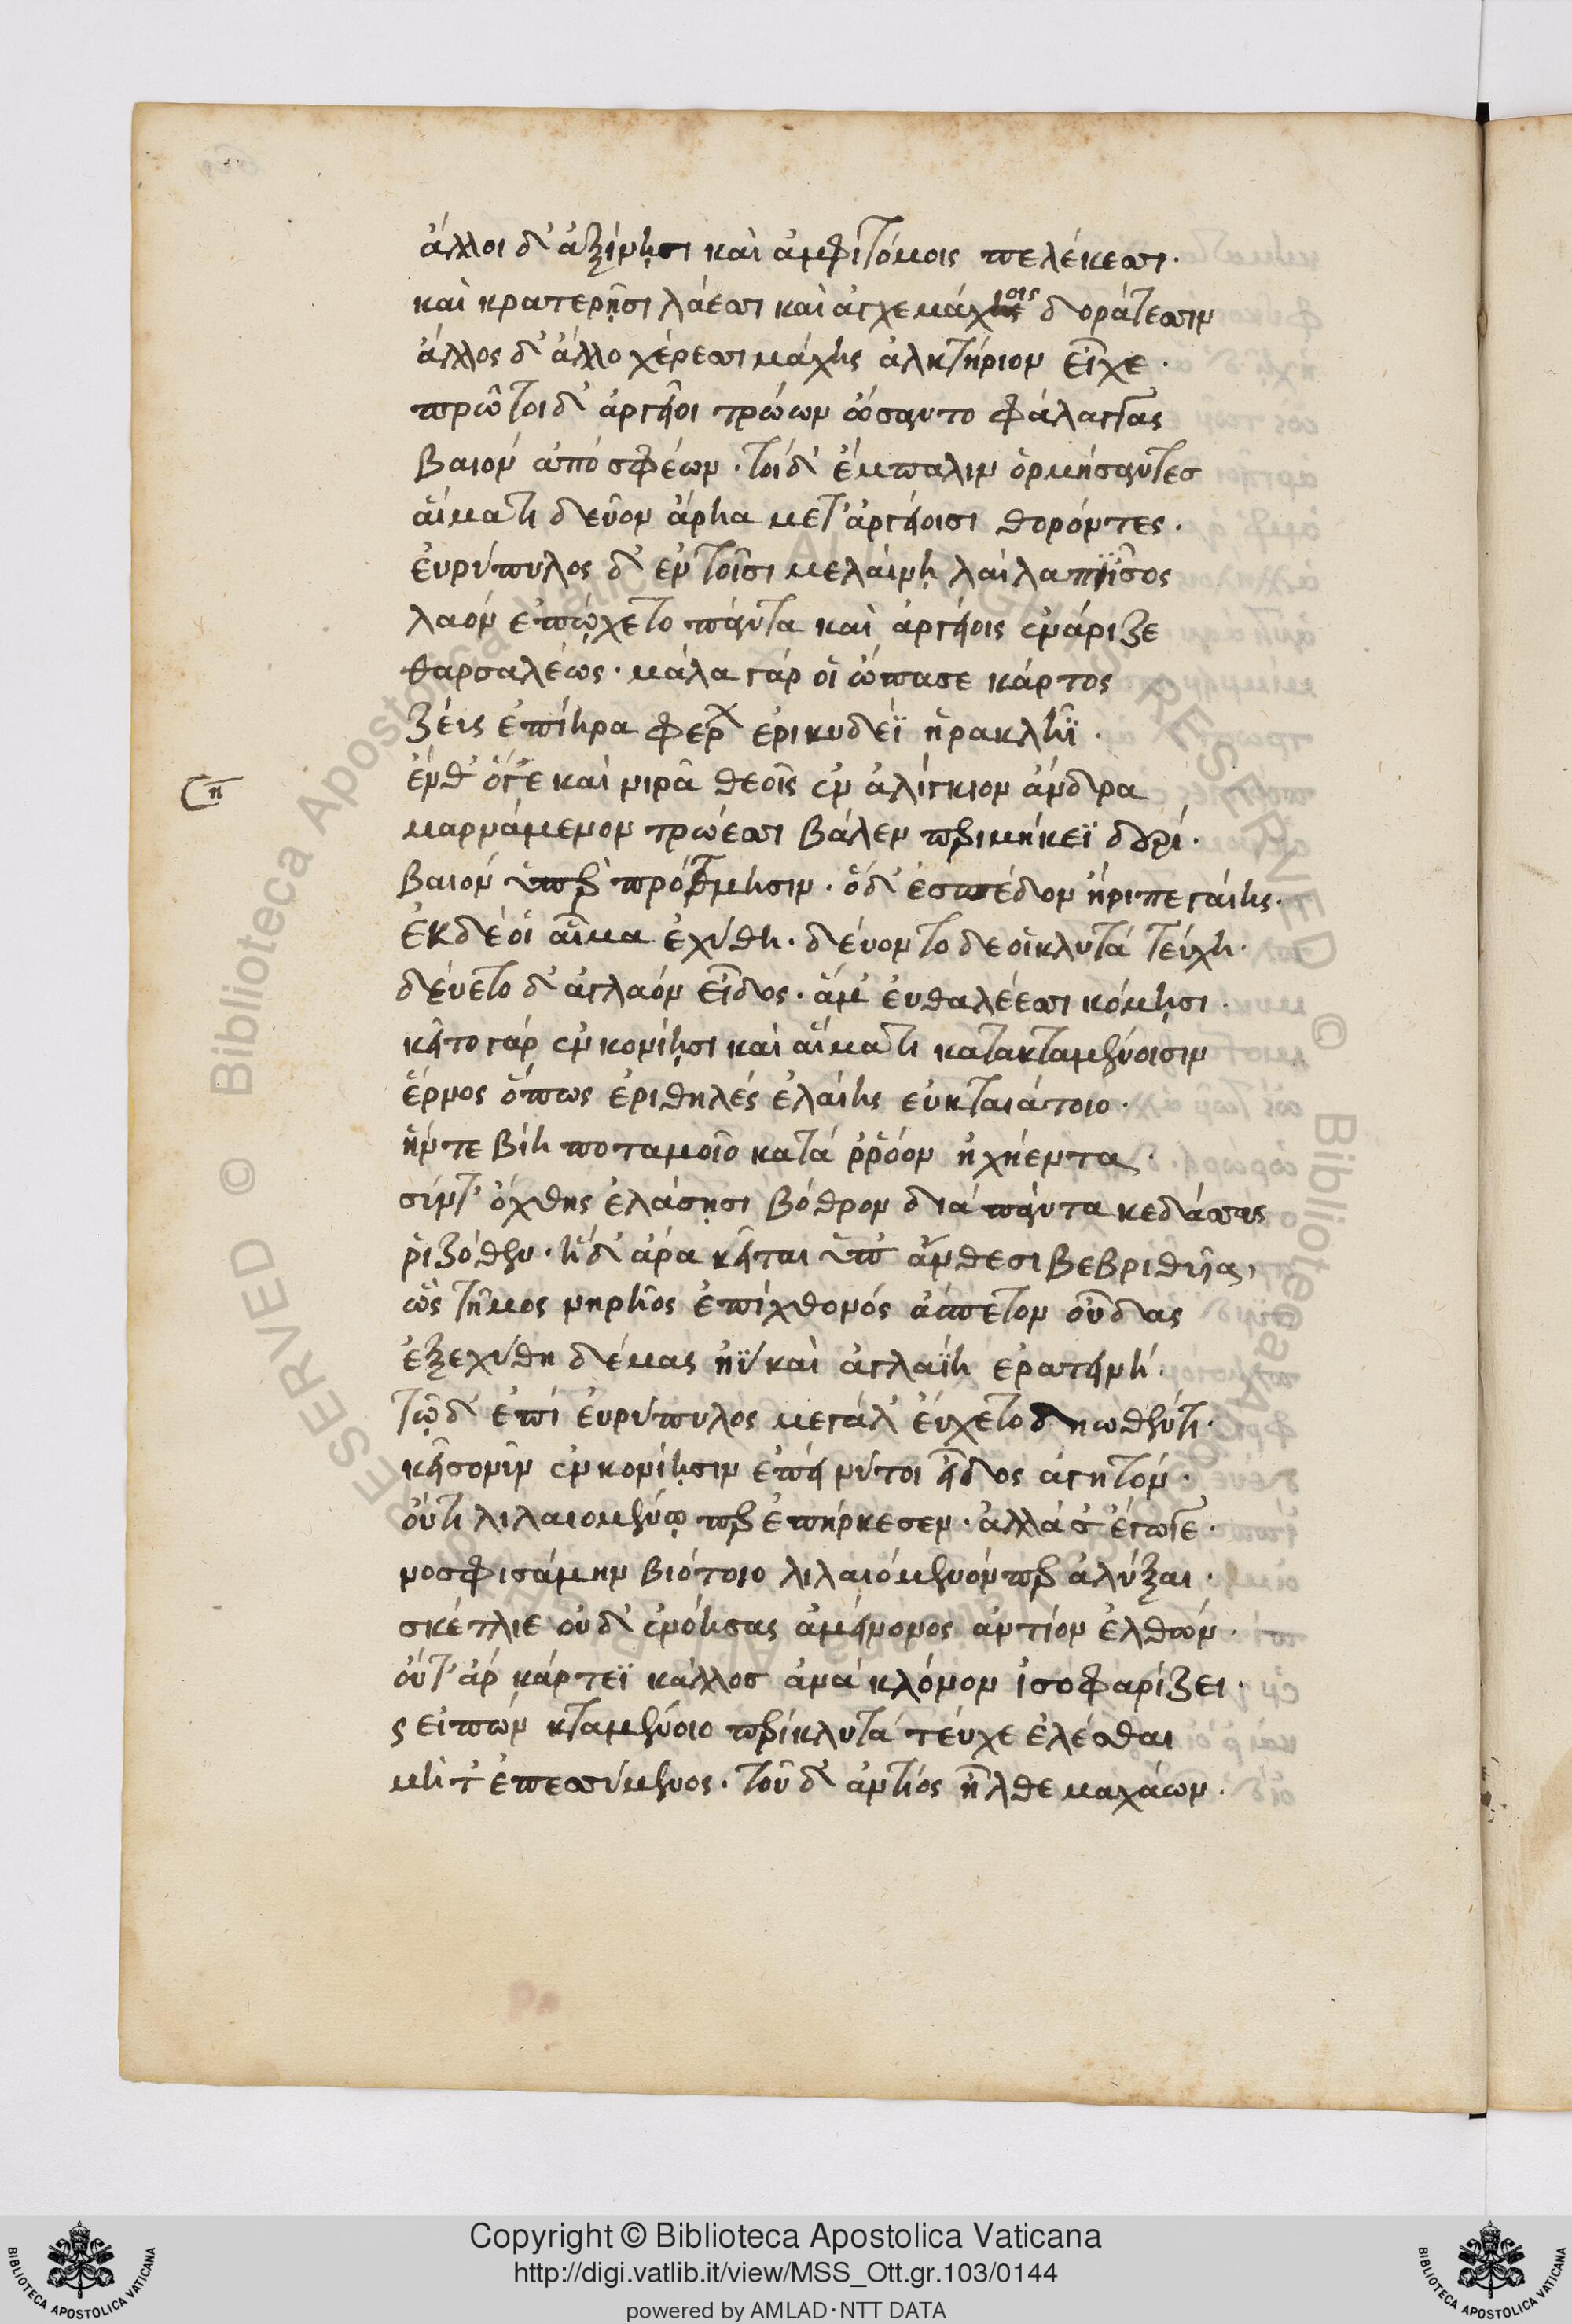 ἄλλοι δ' ἀξίνῃσι καὶ ἀμφιτόμοις πελέκεσσι·
καὶ κρατερῇσι λάεσσι καὶ ἀγχεμάχοις δοράτεσσιν
ἄλλος δ' ἄλλο χέρεσσι μάχης ἀλκτήριον εἶχε·
πρῶτοι δ' ἀργεῖοι τρώων ὤσαντο φάλαγγας
βαιὸν ἀπὸ σφέων· τοὶ δ' ἔμπαλιν ὁρμήσαντες
αἵματι δεῦον ἄρηα μετ' ἀργείοισι θορόντες·
εὐρύπυλος δ' ἐν τοῖσι μελαίνῃ λαίλαπι ἶσος
λαὸν ἐπῴχετο πάντα καὶ ἀργείοις ἐνάριζε
θαρσαλέως· μάλα γάρ οἱ ὤπασε κάρτος
ζεὺς ἐπίηρα φέρων ἐρικυδέϊ ἡρακλῆϊ·
ἔνθ' ὅγε καὶ νιρᾶ θεοῖς ἐναλίγκιον ἄνδρα
μαρνάμενον τρώεσσι βάλεν περιμήκεϊ δουρί·
βαιὸν ὑπὲρ πρότμησιν· ὁ δ' ἐς πέδον ἤριπε γαίης·
ἐκ δέ οἱ αἷμα ἐχύθη· δεύοντο δέ οἱ κλυτὰ τεύχη·
δεύετο δ' ἀγλαὸν εἶδος· ἅμ' εὐθαλέεσσι κόμῃσι·
κεῖτο γὰρ ἐν κονίῃσι καὶ αἵματι κατακταμένοισιν
ἕρνος ὅπως ἐριθηλὲς ἐλαίης εὐκταιάτοιο·
ἥν τε βίη ποταμοῖο κατὰ ῥρόον ἠχήεντα·
σὺν τ' ὄχθης ἐλάσῃσι βόθρον διὰ πάντα κεδάσσας
ῥιζόθεν· ἡ δ' ἄρα κεῖται ὑπ' ἄνθεσι βεβριθυῖα,
ὣς τῆμος νηρῆος ἐπὶ χθονὸς ἄσπετον οὖδας
ἐξεχύθη δέμας ἠῢ καὶ ἀγλαΐη ἐρατεινή·
τῷ δ' ἐπὶ εὐρύπυλος μεγάλ' εὔχετο δηωθέντι·
κεῖσο νῦν ἐν κονίῃσιν ἐπεὶ νύ τοι εἶδος ἀγητόν·
οὔτι λιλαιομένῳ περ ἐπήρκεσεν· ἀλλά σ' ἔγωγε·
νοσφισάμην βιότοιο λιλαιόμενόν περ ἀλύξαι·
σκέτλιε οὐδ' ἐνόησας ἀμείνονος ἀντίον ἐλθών·
οὔτ' ἂρ κάρτεϊ κάλλος ἀνὰ κλόνον ἰσοφαρίζει·
ς εἰπὼν κταμένοιο περὶ κλυτὰ τεύχε ἑλέσθαι
μήτ' ἐπεσσύμενος· τοῦ δ' ἀντίος ἦλθε μαχάων·